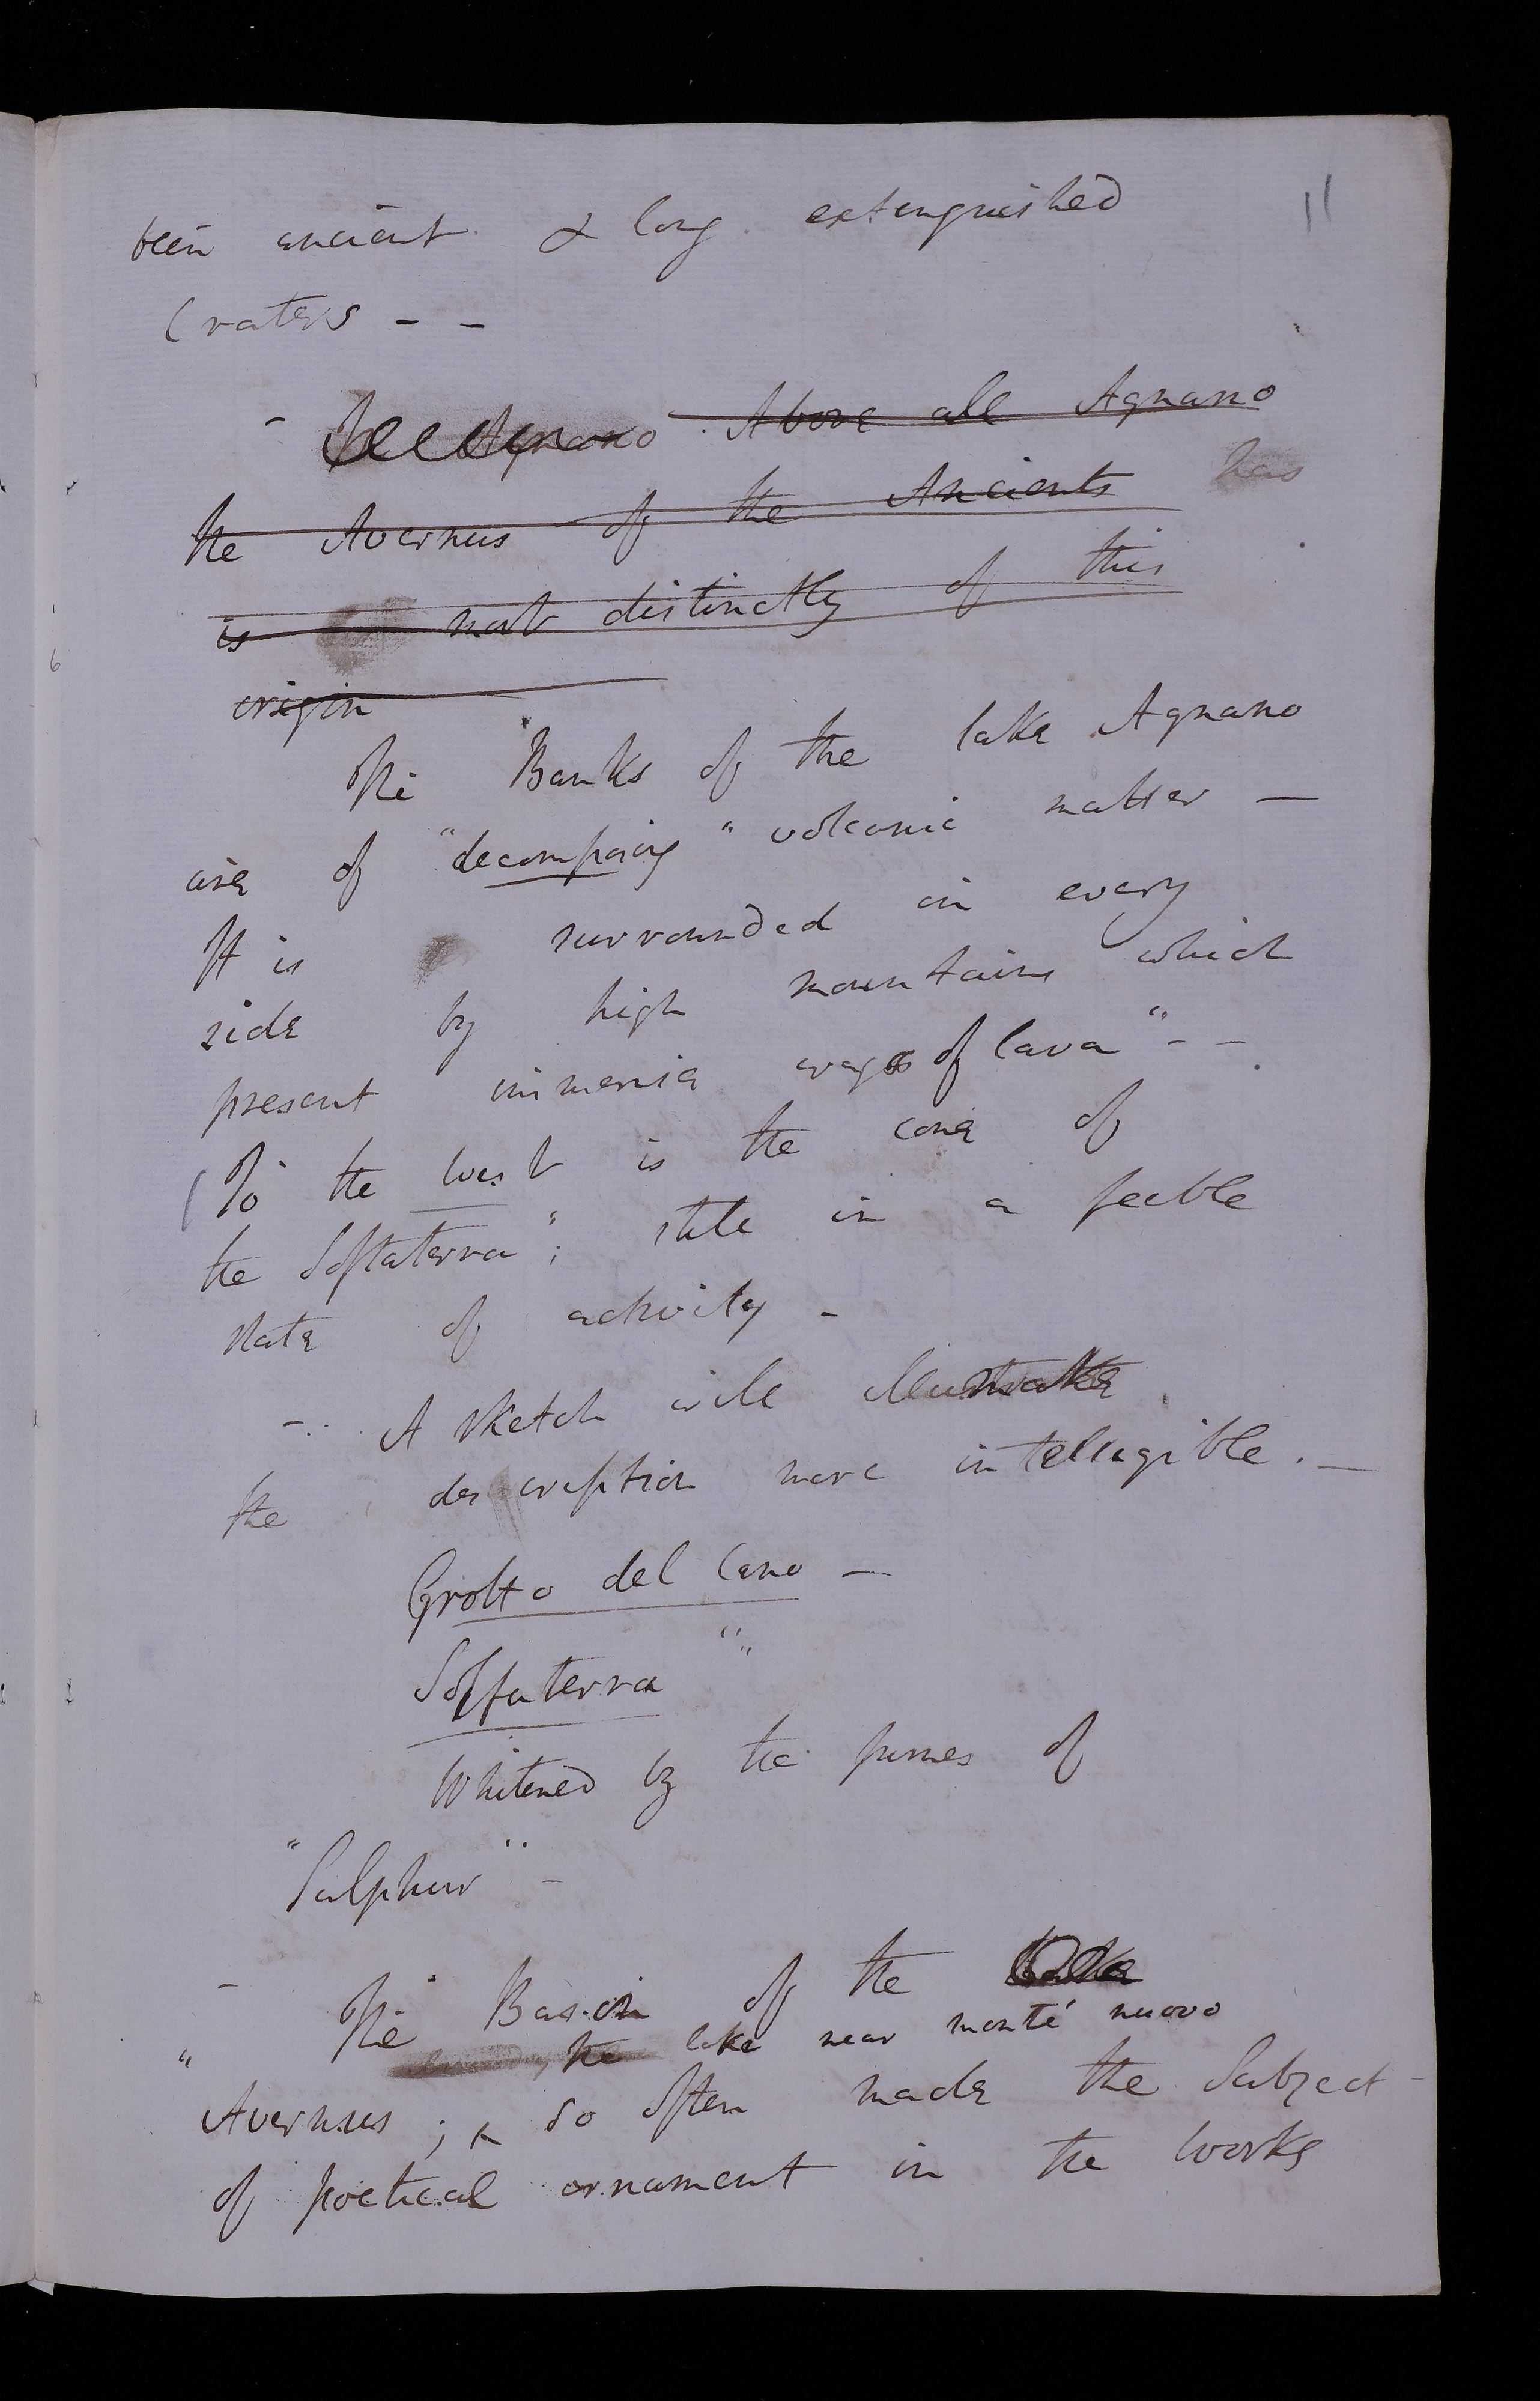 11
been ancient & long extinguished
Craters - -
- Agnano. Above all Agnano
the Avernus of the Ancients has
is not distinctly of this
origin
The Banks of the lake Agnano
are of "decomposing" volcanic matter —
It is surrounded in every
side by high mountains which
present immense crags of lava" - -
(To the west is the cone of
the Solfaterra"; still in a feeble
state of activity -
-. A sketch will make
the description more intellegible. —
Grotto del Cano —
Solfaterra "
Whitened by the fumes of
"Sulphur" -
- The Basin of the
" the lake near monté nuovo
Avernus ; & so often made the Subject -
of poetical ornament in the works